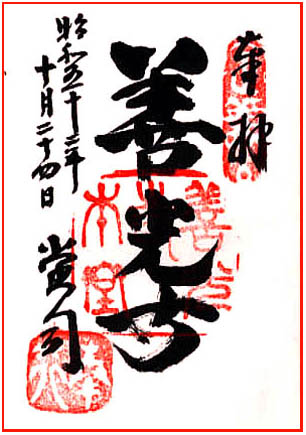 奉拝
善光寺
昭和五十三年
十月二十四日
堂司